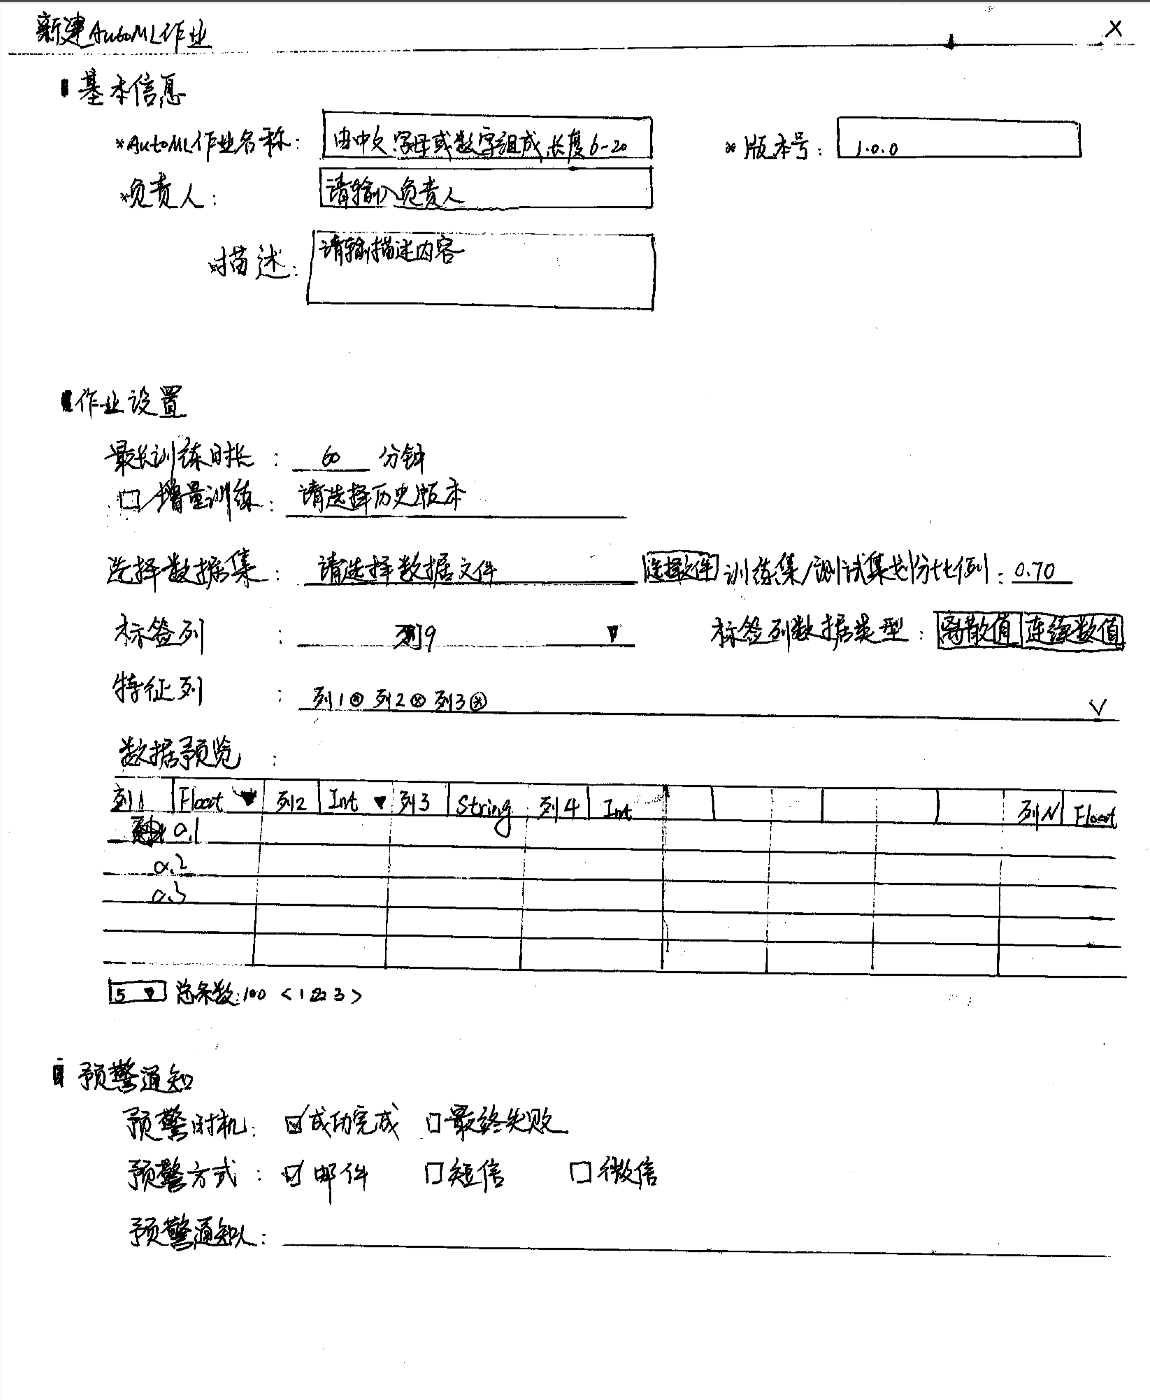 新建AutoML作业 X
基本信息
*AutoML作业名称: 由中文.字母或数字组成,长度6-20 *版本号: 1.0.0
*负责人: 请输入负责人
描述: 请输描述内容
作业设置
最长训练时长: 60 分钟
增量训练: 请选择历史版本
选择数据集: 请选择数据文件 选择文件 训练集/测试集划分比例: 0.70
标签列: 列9 标签列数据类型: 离散值 连续数值
特征列: 列1 列2 列3
数据预览:
列1 Float 列2 Int 列3 String 列4 Int 列N Float
0.1
0.2
0.3
5 总条数:100 <1 2 3>
预警通知
预警时机: 成功完成 最终失败
预警方式: 邮件 短信 微信
预警通知人: